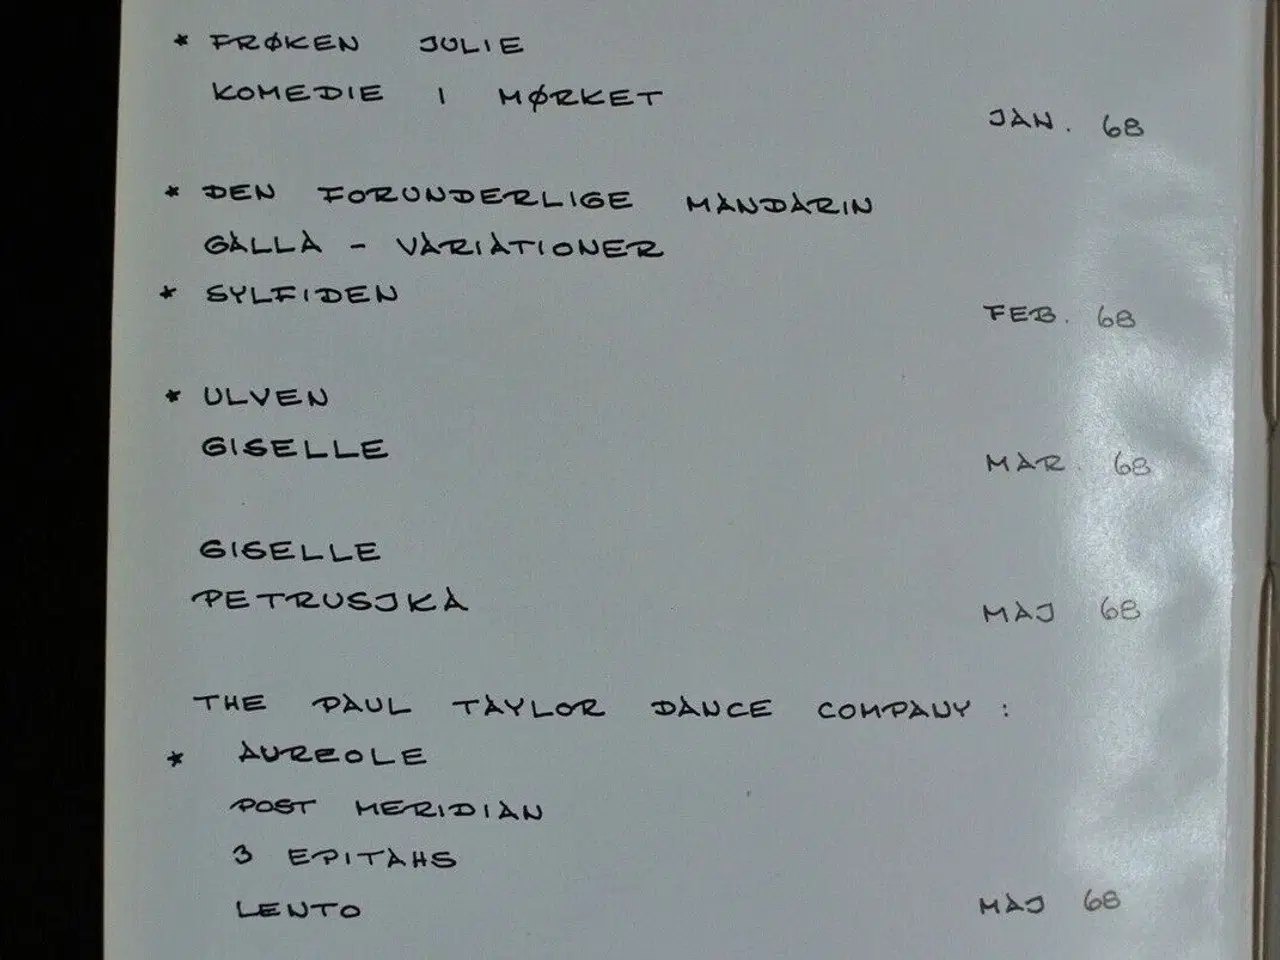 * FRØKEN JULIE
KOMEDIE I MØRKET
JAN. 68
* DEN FORUNDERLIGE MANDARIN
GALLA - VARIATIONER
* SYLFIDEN
FEB. 68
* ULVEN
GISELLE
MAR. 68
GISELLE
PETRUSJKA
MAJ 68
THE PAUL TAYLOR DANCE COMPANY :
* AUREOLE
POST MERIDIAN
3 EPITAHS
LENTO
MAJ 68